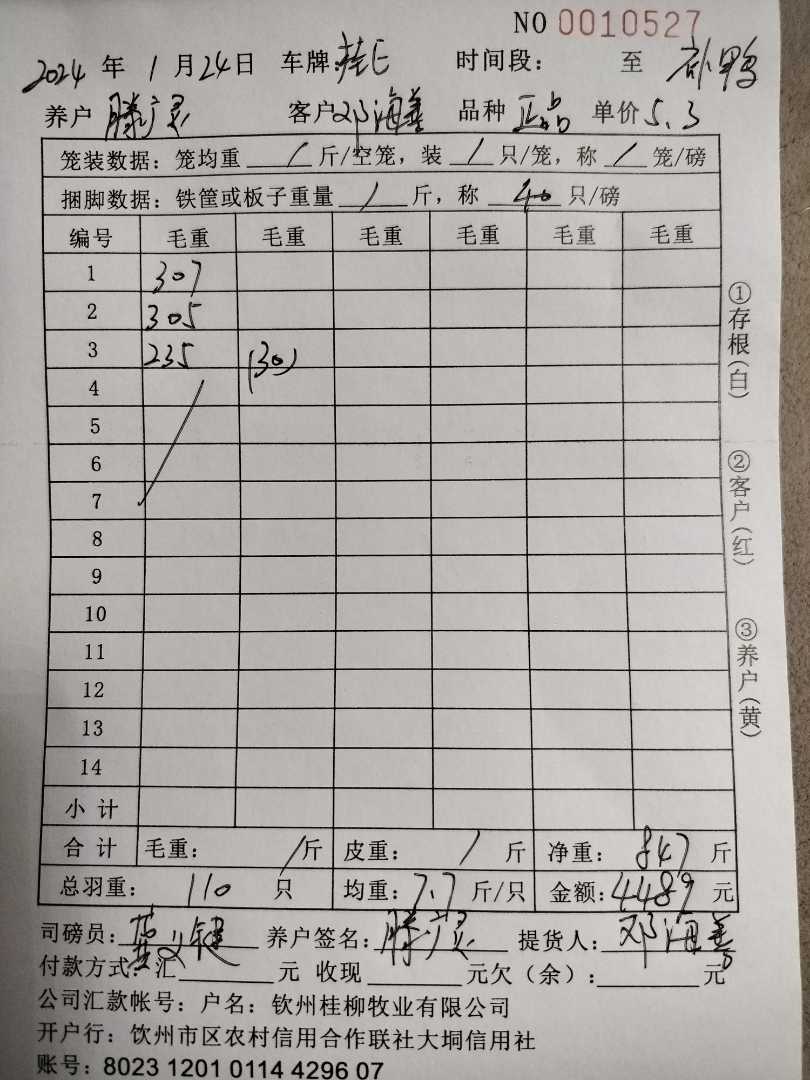 NO 0010527
2024 年 1 月 24 日 车牌: 桂E 时间段: 至 补鸭
养户 滕广灵 客户 邓海善 品种 正品 单价 5.3
笼装数据: 笼均重 / 斤/空笼, 装 / 只/笼, 称 / 笼/磅
捆脚数据: 铁筐或板子重量 / 斤, 称 40 只/磅
编号 毛重 毛重 毛重 毛重 毛重 毛重
1 307
2 305
3 235 (30)
4
5
6
7
8
9
10
11
12
13
14
小计
合计 毛重: / 斤 皮重: / 斤 净重: 847 斤
总羽重: 110 只 均重: 7.7 斤/只 金额: 4489 元
司磅员: 义键 养户签名: 滕广灵 提货人: 邓海善
付款方式: 汇 元 收现 元欠(余): 元
公司汇款帐号: 户名: 钦州桂柳牧业有限公司
开户行: 饮州市区农村信用合作联社大垌信用社
账号: 8023 1201 0114 4296 07
①存根(白)
②客户(红)
③养户(黄)